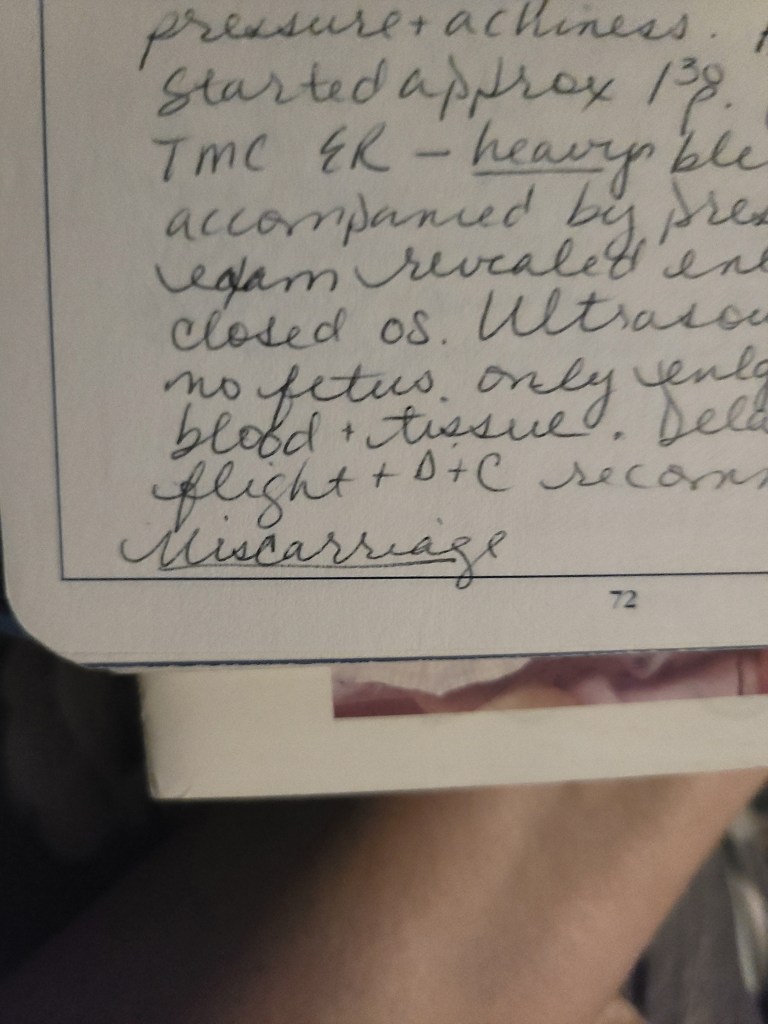 pressure + achiness.
Started approx 1
TMC ER - heavy ble
accompanied by pres
exam revealed enl
closed os. Ultrasou
no fetus. only enlg
blood + tissue. Dela
flight + D+C recomm
Miscarriage
72